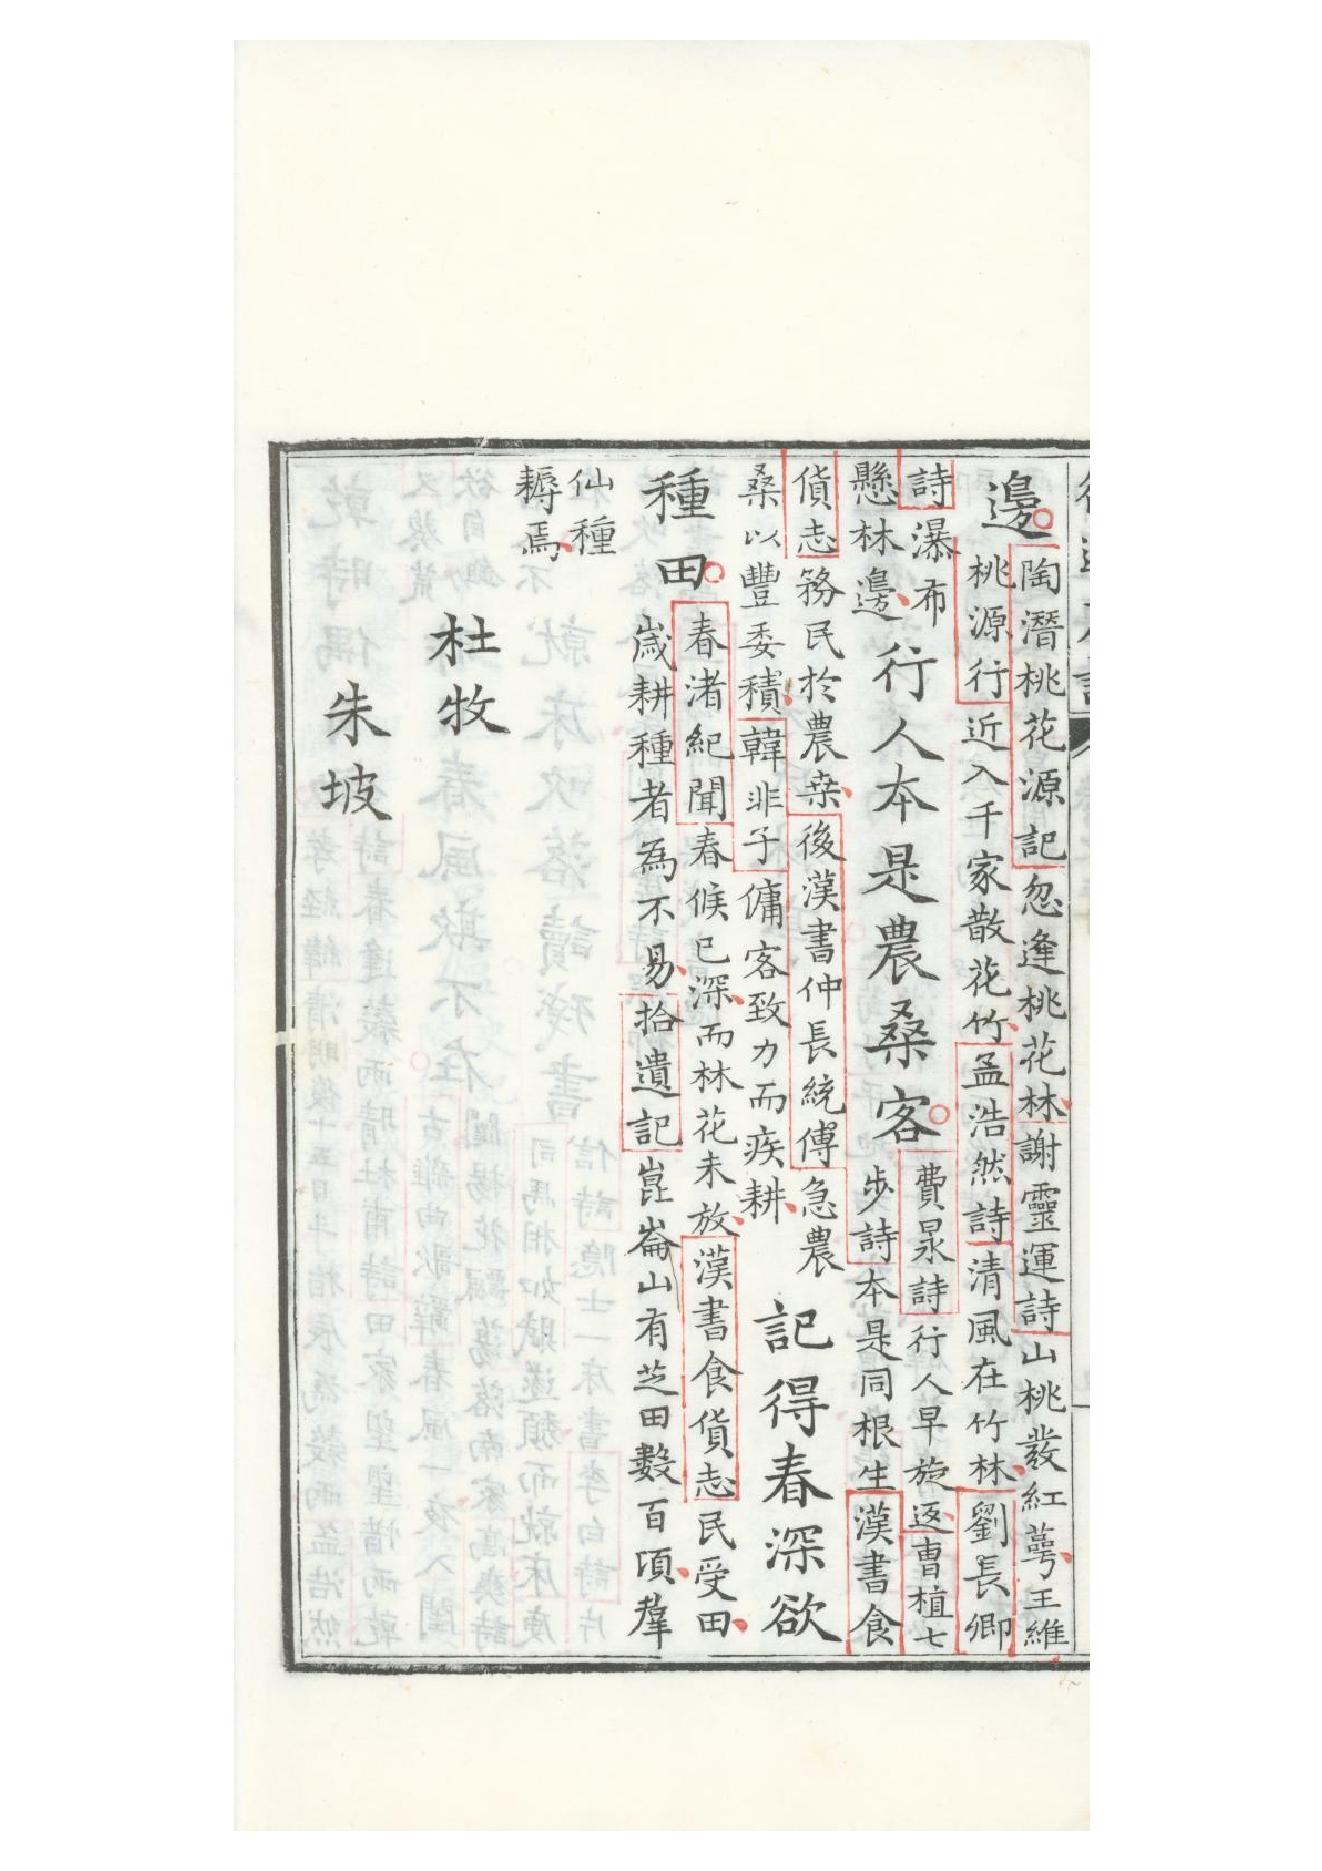 邊陶潛桃花源記忽逢桃花林謝靈運詩山桃發紅萼王維
桃源行近入千家散花竹孟浩然詩清風在竹林劉長卿
詩瀑布
懸林邊
行人本是農桑客
費昶詩行人早旋返曹植七
步詩本是同根生漢書食
貨志務民於農桒後漢書仲長統傳急農
桑以豐委積韓非子傭客致力而疾耕
記得春深欲
種田
春渚紀聞春候已深而林花未放漢書食貨志民受田
歲耕種者為不易拾遺記崑崙山有芝田數百頃羣
仙種
耨焉
杜牧
朱坡